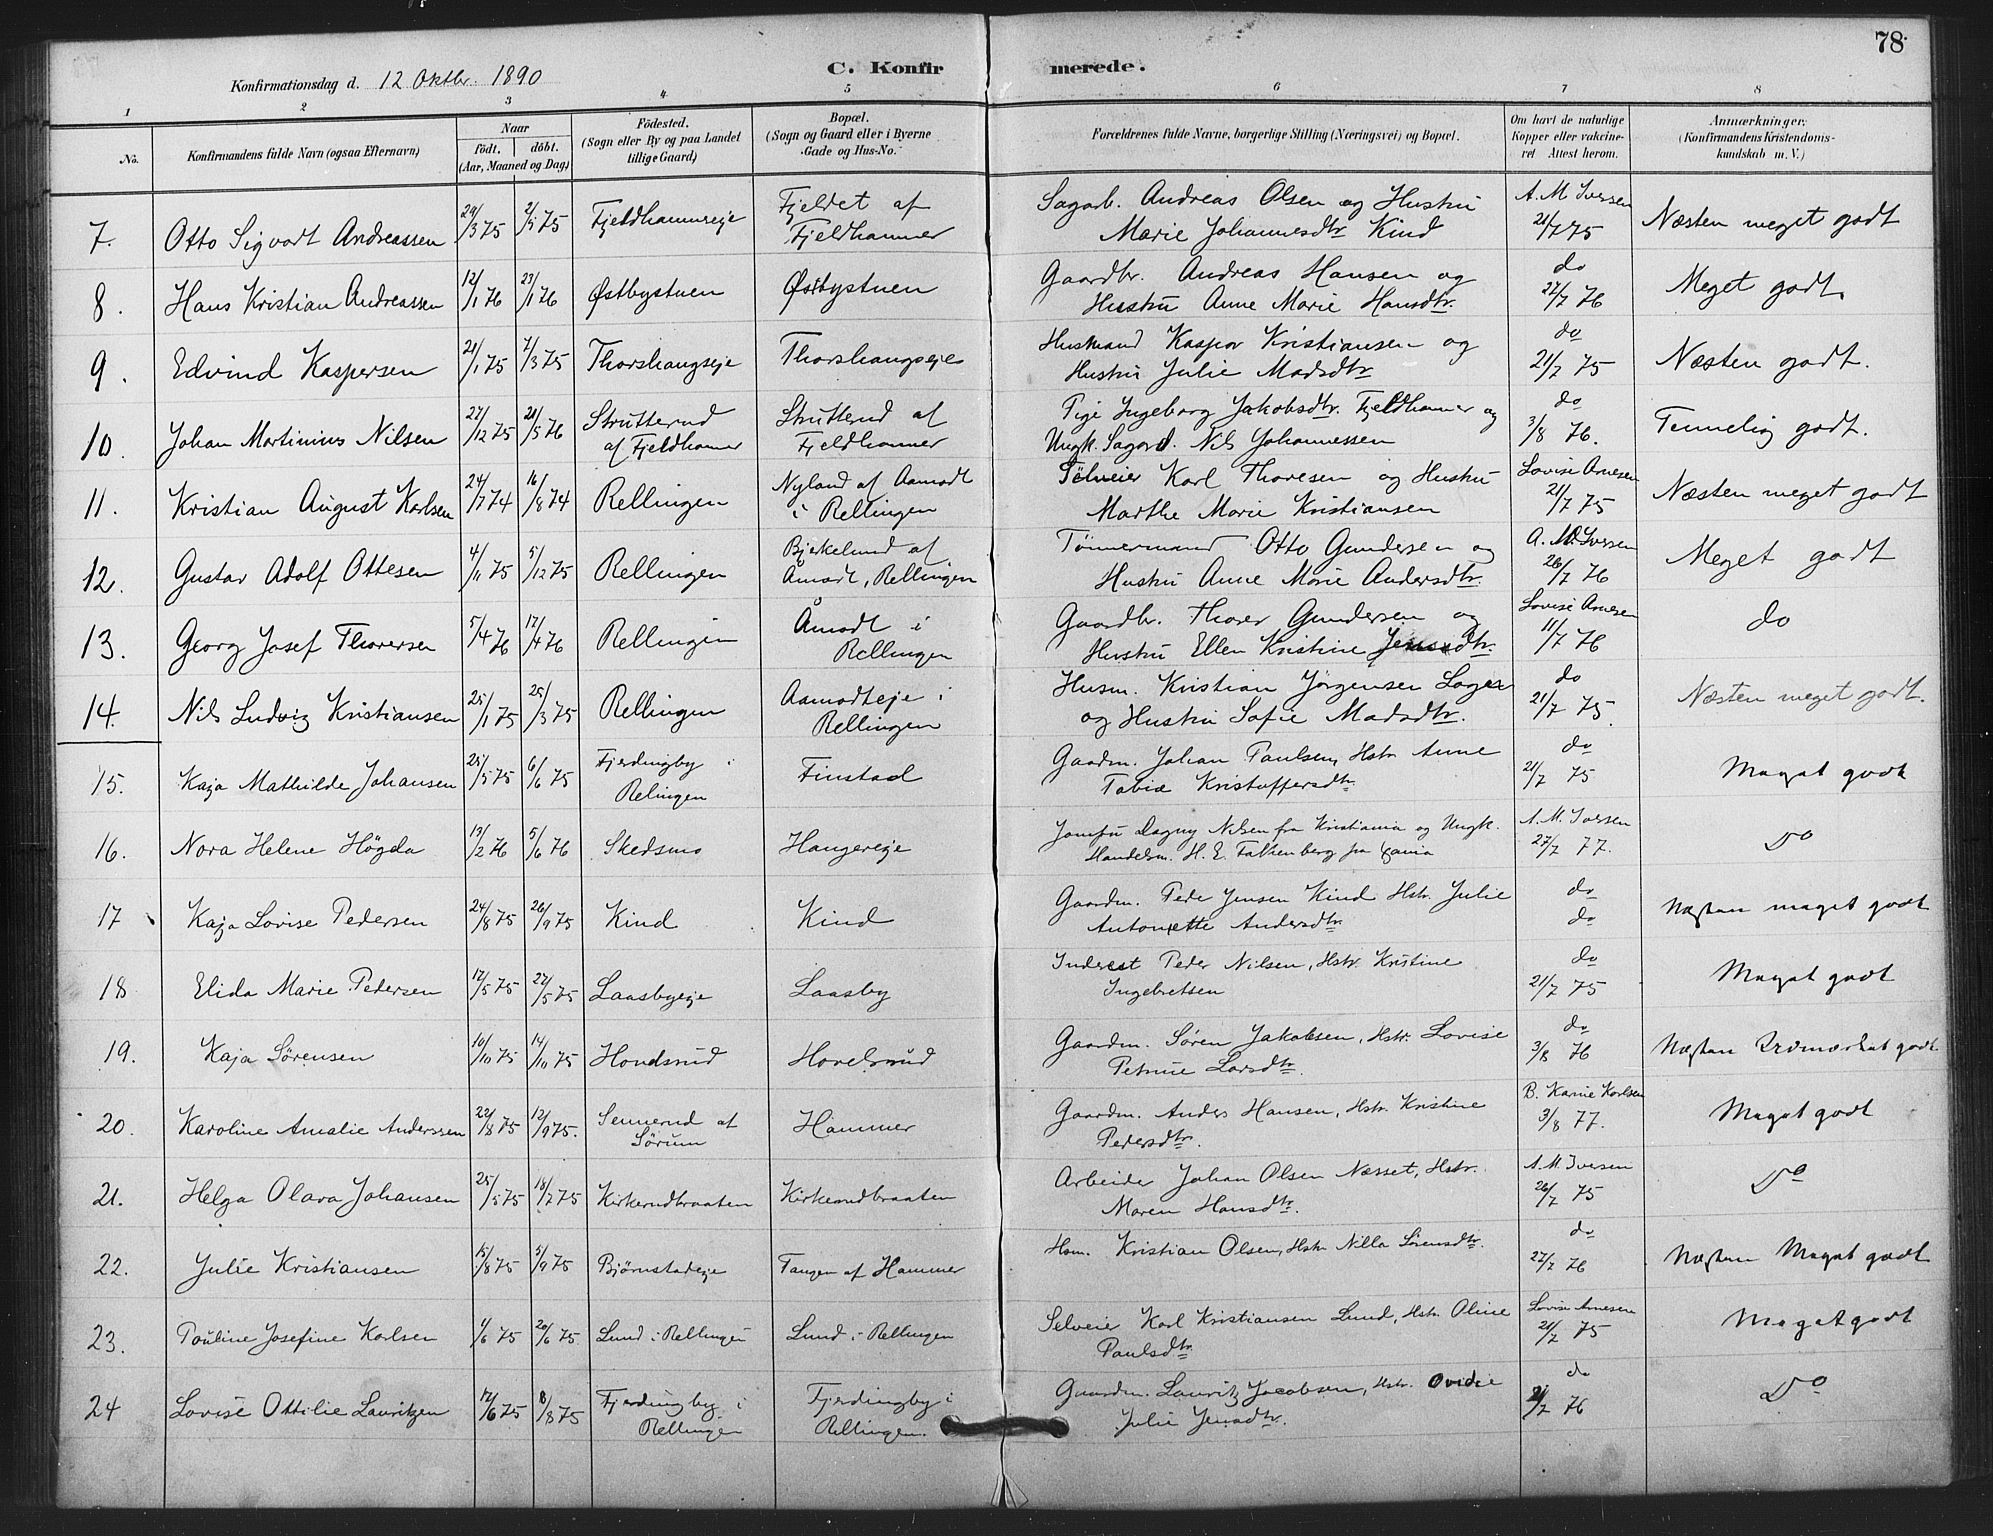 78
Konfirmationsdag d. 12 Oktbr. 1890
C. Konfirmerede.
1 2 3 4 5 6 7 8
No. Konfirmandens fulde Navn (ogsaa Efternavn) Naar født. døbt. (Aar, Maaned og Dag) Födested. (Sogn eller By og paa Landet tillige Gaard) Bopæl. (Sogn og Gaard eller i Byerne Gade og Hus-No. Forældrenes fulde Navne, borgerlige Stilling (Næringsvei) og Bopæl. Om havt de naturlige Kopper eller vakcineret Attest herom. Anmærkninger, (Konfirmandens Kristendomskundskab m. V.)
7. Otto Sigvart Andreassen 29/3 75 2/5 75 Fjeldhammereje Fjeldet af Fjeldhammer Sagarb. Andreas Olsen og Hustru Marie Johannesdtr Kind A. M Iversen 21/7 75 Næsten meget godt
8. Hans Kristian Andreassen 12/1 76 23/1 76 Østbystuen Østbystuen Gaardbr. Andreas Hansen og Hustru Anne Marie Hansdtr. do 27/7 76 Meget godt.
9. Edvind Kaspersen 21/1 75 7/3 75 Thorshaugseje Thorshaugseje Husmand Kaspar Kristiansen og Hustru Julie Madsdtr do 21/7 75 Næsten godt.
10. Johan Martinius Nilsen 27/12 75 21/5 76 Strutterud af Fjeldhamer Strutterud af Fjeldhammer Pige Ingeborg Jakobsdtr. Fjeldhamer og Ungk. Sagard. Nils Johannessen do 3/8 76. Temmelig godt.
11. Kristian August Karlsen 24/7 74 16/8 74 Rellingen Nyland af Aamodt i Rellingen Selveier Karl Thoresen og Hustru Marthe Marie Kristiansen Lovise Arnesen 21/7 75 Næsten meget godt
12. Gustav Adolf Ottesen 4/11 75 5/12 75 Rellingen Bjerkelund af Åmodt, Rellingen Tömmermand Otto Gundersen og Hustru Anne Marie Andersdtr. A. M. Iversen 26/7 76 Meget godt
13. Georg Josef Thorersen 5/4 76 17/4 76 Rellingen Åmodt i Rellingen Gaardbr. Thorer Gundersen og Hustru Ellen Kristine Jensdtr. Lovise Arnesen 11/7 76 do
14. Nils Ludvig Kristiansen 25/1 75 25/3 75 Rellingen Aamodteje i Rellingen Husm. Kristian Jørgensen Lager og Hustru Sofie Madsdtr. do 21/7 75. Næsten meget godt.
15. Kaja Mathilde Johansen 25/5 75 6/6 75 Fjerdingby i Relingen Finstad Gaardm. Johan Paulsen, Hstr Anne Tobie Kristoffersdtr do 21/7 75 Meget godt
16. Nora Helene Högda 13/2 76 5/6 76 Skedsmo Haugereje Jomfru Dagny Nilsen fra Kristiania og Ungk. Handelsm. H. E. Falkenberg fra Xania A. M. Iversen 27/7 77. Do
17 Kaja Lovise Pedersen 24/8 75 26/9 75 Kind Kind Gaardm. Peder Jensen Kind Hstr. Julie Antonette Andersdtr. do do Næsten meget godt
18 Elida Marie Pedersen 17/5 75 27/5 75 Laasbyeje Laasby Inderst Peder Nilsen, Hstr. Kristine Ingebretsen do 21/7 75 Meget godt
19. Kaja Sørensen 10/10 75 14/11 75 Hovdsrud Hovelsrud Gaardm. Sören Jakobsen, Hstr. Lovise Petrine Larsdtr. do 3/8 76 Næsten Udmærket godt
20. Karoline Amalie Anderssen 22/8 75 12/9 75. Sennerud af Sörum Hammer Gaardm. Anders Hansen, Hstr. Kristine Pedersdtr. B. Karine Karlsen 3/8 77. Meget godt
21. Helga Olava Johansen 25/5 75 18/7 75 Kirkerudbraaten Kirkerudbraaten Arbeider Johan Olsen Næsset, Hstr. Maren Hansdtr. A. M. Iversen 26/7 75 Do
22. Julie Kristiansen 15/8 75 5/9 75 Bjørnstadeje Tangen af Hammer Hsm. Kristian Olsen, Hstr Nilla Sörensdtr. do 27/7 76 Næsten Meget godt
23. Pauline Josefine Karlsen 1/6 75 20/6 75 Lund i Rellingen Lund i Rellingen Selveier Karl Kristiansen Lund, Hstr. Oline Paulsdtr Lovise Arnesen 21/7 75 Meget godt
24 Lovise Ottilie Lauritzen 17/6 75 8/8 75 Fjerdingby i Rellingen Fjerdingby i Rellingen. Gaardm. Lauritz Jacobsen, Hstr. Ovidie Julie Jensdtr. do 21/7 76 Do